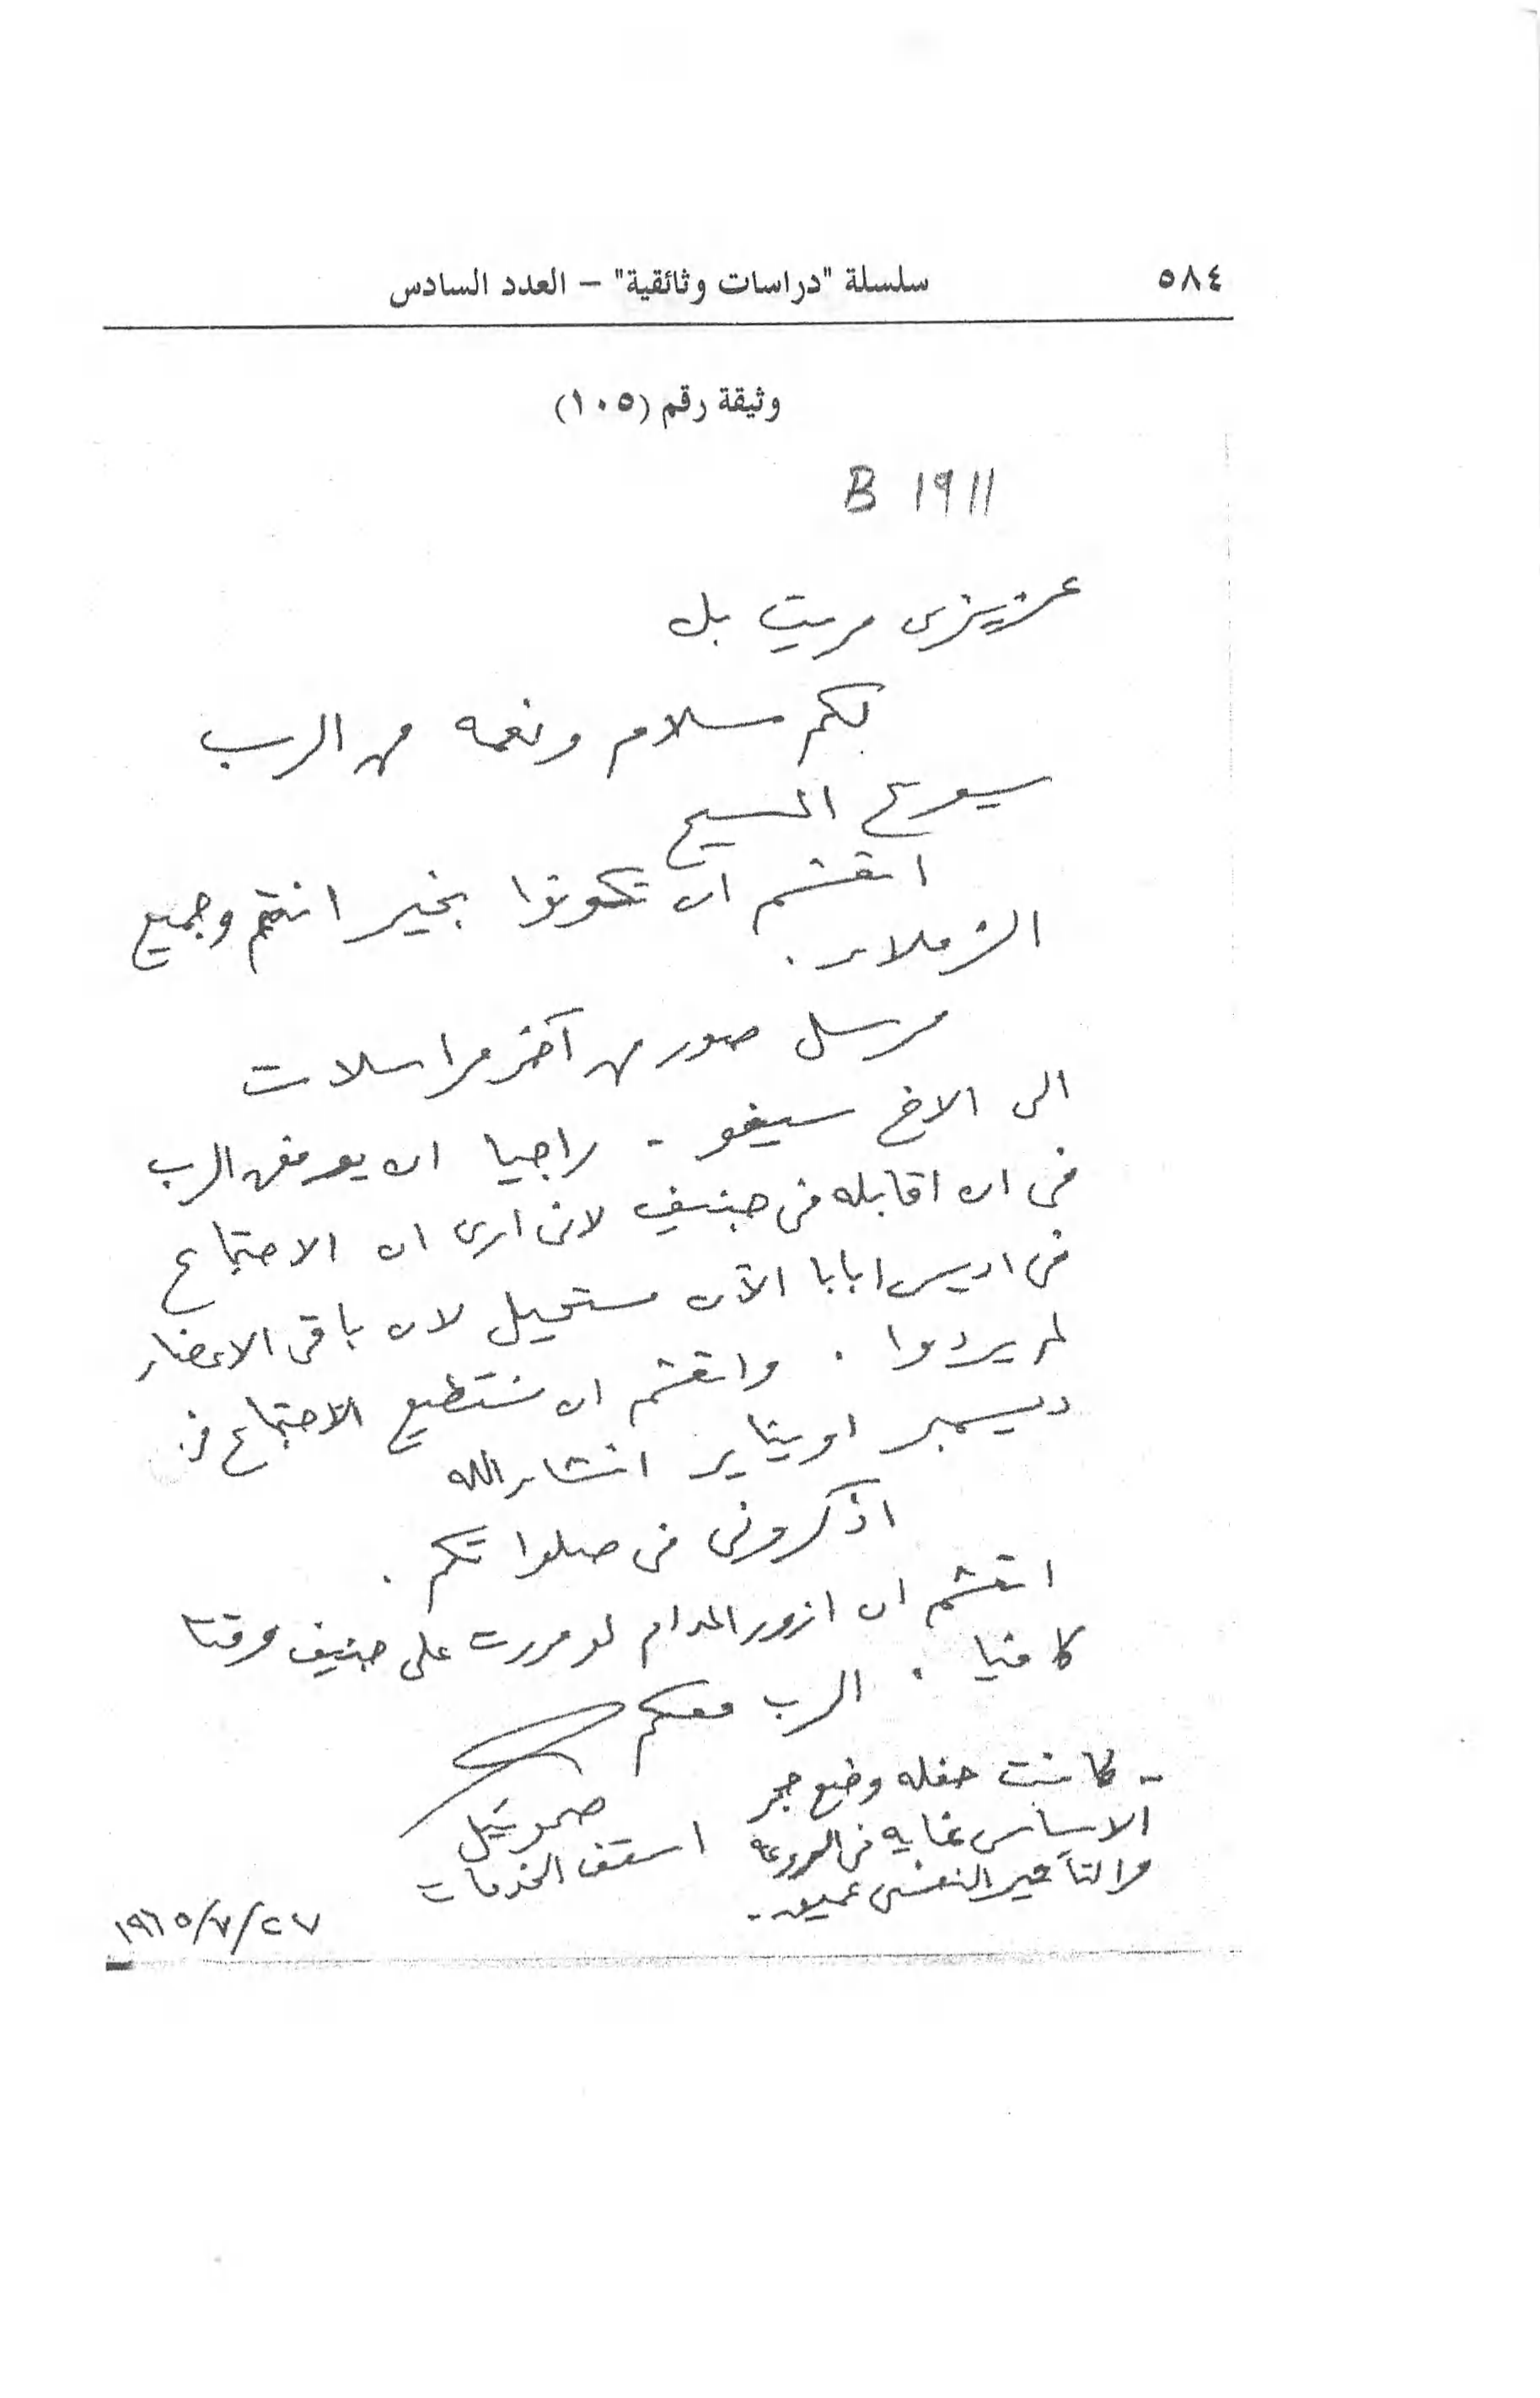 ٥٨٤
سلسلة "دراسات وثائقية" – العدد السادس
وثيقة رقم (١٠٥)
B 1911
عزيزى مريت بك
لكم سلام ونعمه من الرب
يسوع المسيح
اتعشم ان تكونوا بخير انتم وجميع
الزملاء .
مرسل صور من آخر مراسلات
الى الاخ سيفو - راجيا ان يوفقنى الرب
فى ان اقابله فى جنيف لانى ارى ان الاجتماع
فى اديس ابابا الآن مستحيل لان باقى الاعضاء
لم يردوا . واتعشم ان نستطيع الاجتماع فى
ديسمبر او يناير انشاء الله
اذكرونى فى صلواتكم .
اتعشم ان ازور المدام لو مررت على جنيف وقتا
كافيا . الرب معكم
صموئيل
اسقف الخدمات
٢٧/٧/١٩٦٥
- كانت حفله وضع حجر
الاساس غايه فى الروعه
والتأثير النفسى عميق -